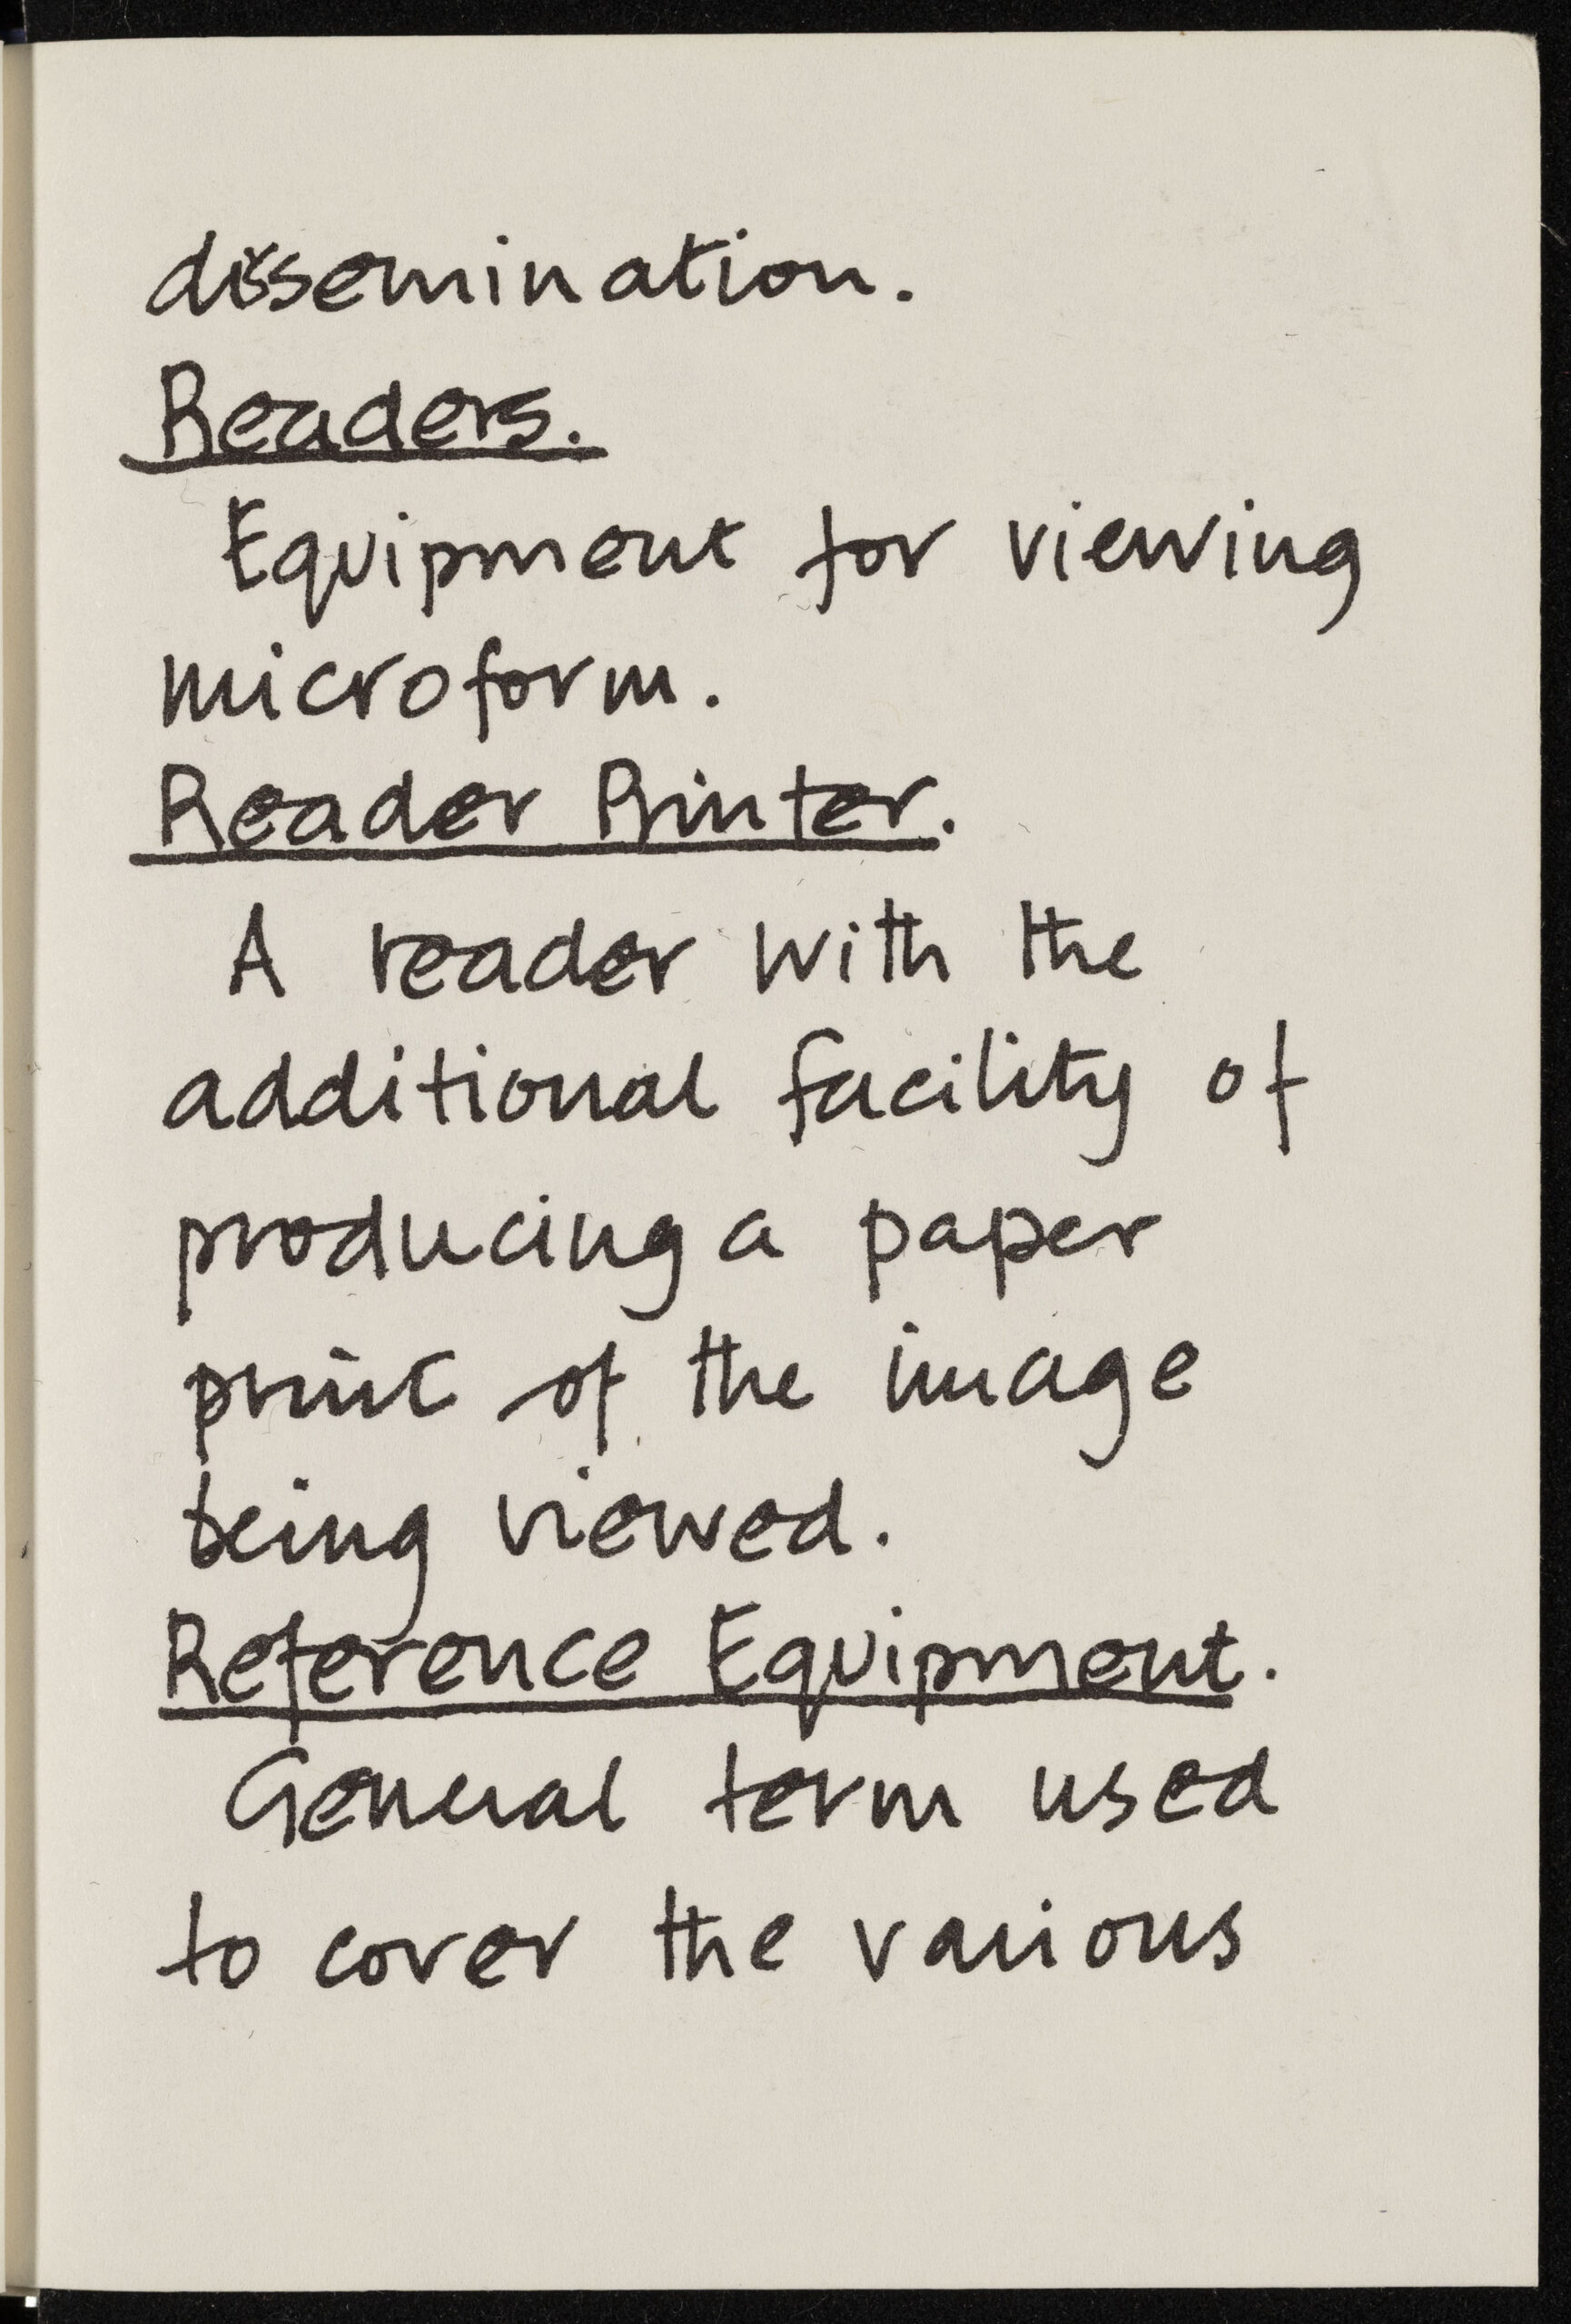 dissemination.
Readers.
Equipment for viewing
microform.
Reader Printer.
A reader with the
additional facility of
producing a paper
print of the image
being viewed.
Reference Equipment.
General term used
to cover the various